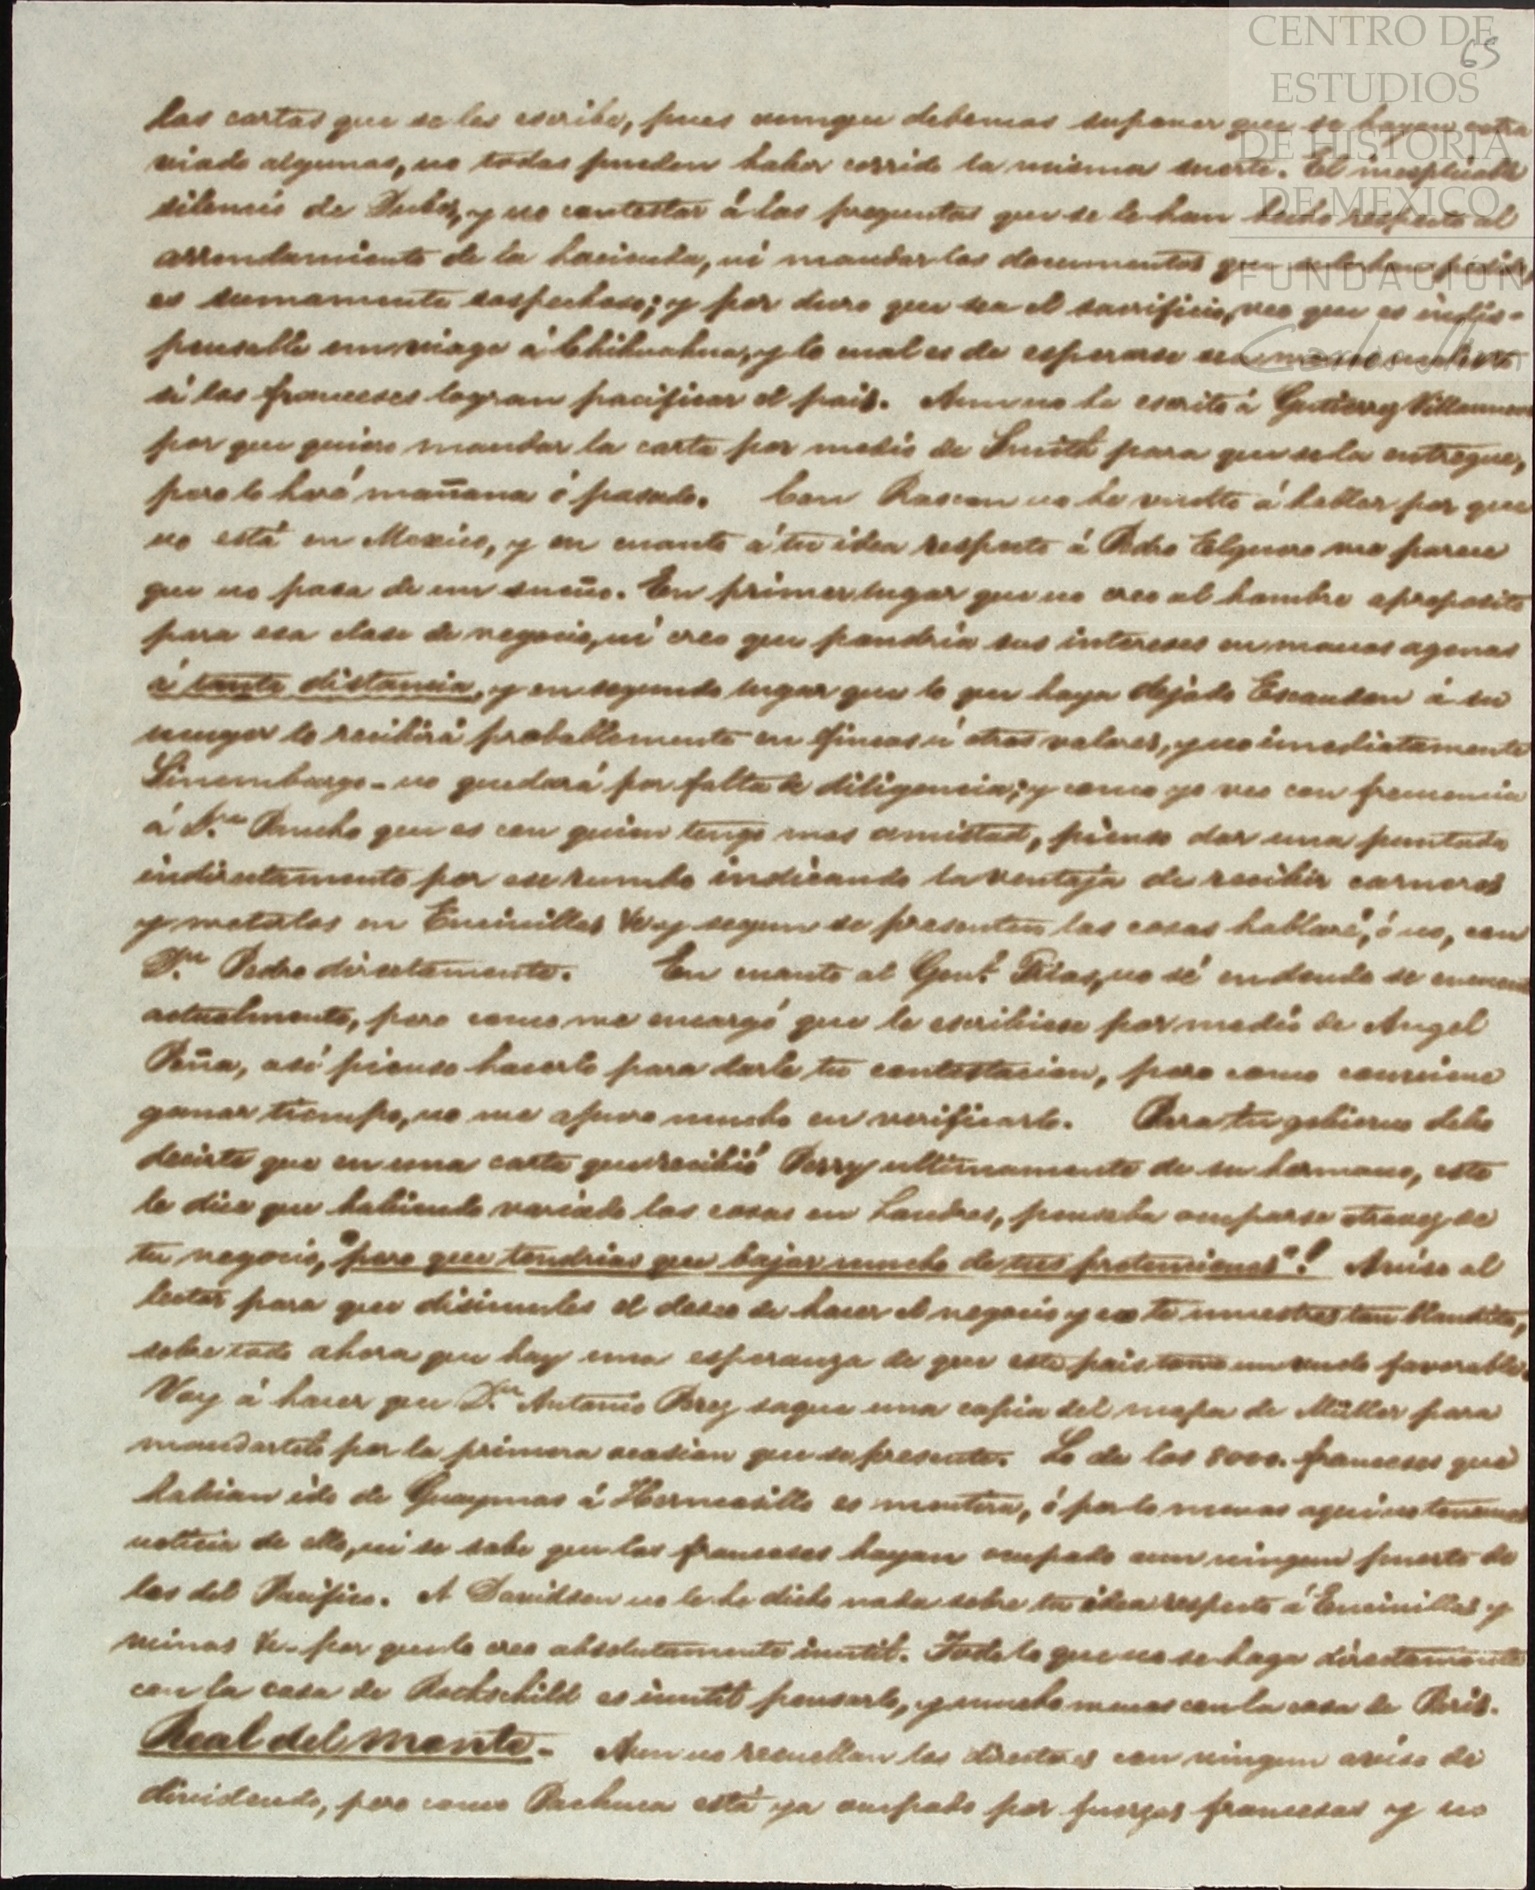 CENTRO DE
ESTUDIOS
DE HISTORIA
DE MEXICO
FUNDACIÓN
65
las cartas que se les escribe, pues aunque debemos suponer que se hayan estra
viado algunas, no todas pueden haber corrido la misma suerte. El inesplicable
silencio de y no contestar á las preguntas que se le han hecho respecto al
arrendamiento de la hacienda, ni mandar los documentos que se le han pedido,
es sumamente sospechoso; y por duro que sea el sacrificio, veo que es indis-
pensable un viage á Chihuahua, y lo cual es de esperarse sea
si los franceses logran pacificar el pais. Aun no he escrito á Gutierrez Villanueva
por que quiero mandar la carta por medio de Smith para que se la entregue,
pero lo haré mañana ó pasado. Con Rascon no he vuelto á hablar por que
no está en Mexico, y en cuanto á tu idea respecto á Pedro Elguero me parece
que no pasa de un sueño. En primer lugar que no creo al hombre aproposito
para esa clase de negocio, ni creo que pondria sus intereses en manos agenas
á tanta distancia, y en segundo lugar que lo que haya dejado Escandon á su
muger lo recibirá probablemente en fincas ú otros valores, y no inmediatamente
Sinembargo - no quedará por falta de diligencia; y como yo veo con frecuencia
á Dn Pancho que es con quien tengo mas amistad, pienso dar una puntada
indirectamente por ese rumbo indicando la ventaja de recibir carneros
y meterlos en Encinillas &c y segun se presenten las cosas hablaré, ó no, con
Dn Pedro directamente. En cuanto al Genl. no sé en donde se encuentra
actualmente, pero como me encargó que le escribiese por medio de Angel
Peña, asi pienso hacerlo para darle tu contestacion, pero como conviene
ganar tiempo, no me apuro mucho en verificarlo. Para tu gobierno debo
decirte que en una carta que recibió Perry ultimamente de su hermano, este
le dice que habiendo variado las cosas en Londres, pensaba ocuparse otravez de
tu negocio, "pero que tendrias que bajar mucho de tus pretenciones"! Aviso al
lector para que disimules el deseo de hacer el negocio y no te muestres tan blandito,
sobre todo ahora que hay una esperanza de que este pais tome un vuelo favorable.
Voy á hacer que Dn Antonio Perez saque una copia del mapa de Müller para
mandartela por la primera ocasion que se presente. Lo de los 8000. franceses que
habian ido de Guaymas á Hermosillo es mentira, ó por lo menos aqui no tenemos
noticia de ello, ni se sabe que los franceses hayan ocupado aun ningun puerto de
los del Pacifico. A Davidson no le he dicho nada sobre tu idea respecto á Encinillas y
minas &c - por que lo creo absolutamente inutil. Todo lo que no se haga directamente
con la casa de Rothschild es inutil pensarlo, y mucho menos con la casa de Paris.
Real del Monte. - Aun no resuellan los directores con ningun aviso de
dividendo, pero como Pachuca está ya ocupado por fuerzas francesas y no